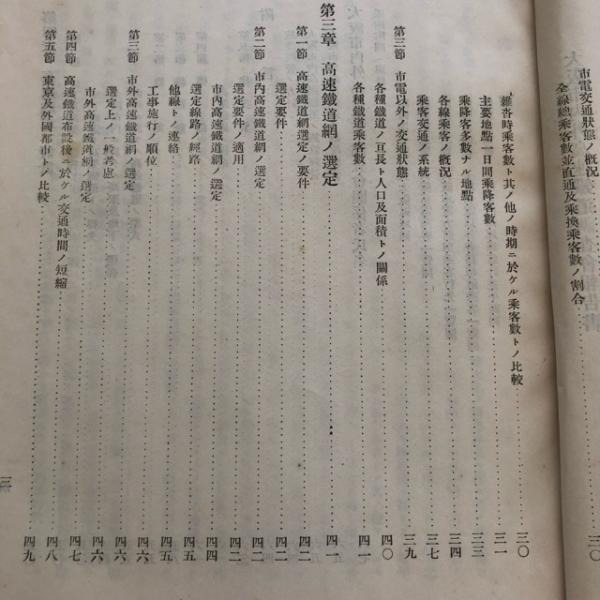 市電交通狀態ノ概況
全線總乘客數並直通及乘換乘客數ノ割合 三〇
雜沓時乘客數ト其ノ他ノ時期ニ於ケル乘客數トノ比較 三〇
主要地點一日間乘降客數 三一
乘降客多數ナル地點 三三
各線乘客ノ概況 三四
乘客交通ノ系統 三七
第三節 市電以外ノ交通狀態 三九
各種鐵道ノ亘長ト人口及面積トノ關係 四〇
各種鐵道乘客數 四一
第三章 高速鐵道網ノ選定 四一
第一節 高速鐵道網選定ノ要件 四二
選定要件 四二
選定要件ノ適用 四二
第二節 市內高速鐵道網ノ選定 四二
市內高速鐵道網ノ選定 四四
選定線路ノ經路 四四
他線トノ連絡 四五
工事施行ノ順位 四五
第三節 市外高速鐵道網ノ選定 四六
選定上ノ一般考慮 四六
市外高速鐵道網ノ選定 四六
第四節 高速鐵道布設後ニ於ケル交通時間ノ短縮 四七
第五節 東京及外國都市トノ比較 四八
四九
三